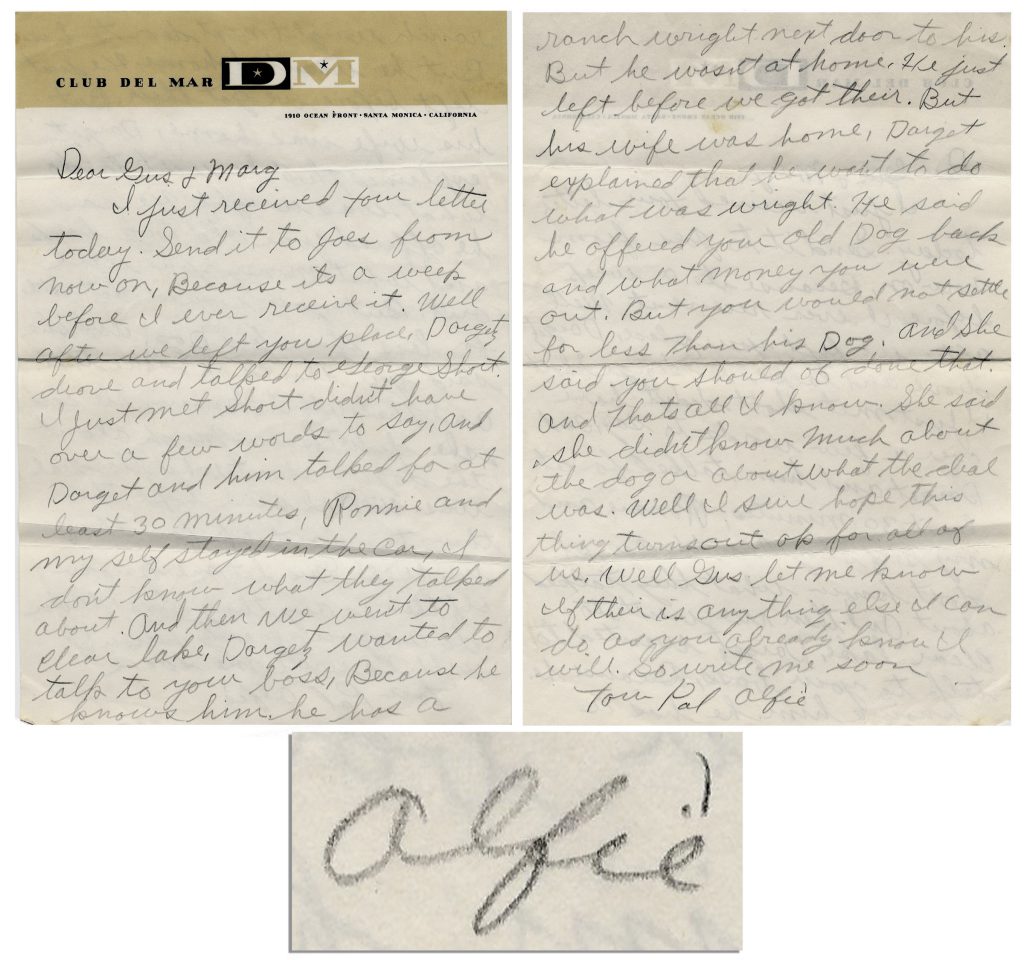 CLUB DEL MAR DM
1910 OCEAN FRONT · SANTA MONICA · CALIFORNIA
Dear Gus & Marg
I just received your letter
today. Send it to Joes from
now on, Because its a week
before I ever receive it. Well
after we left you place, Dargetz
drove and talked to George Short.
I just met Short didn't have
over a few words to say, and
Darget and him talked for at
least 30 minutes, Ronnie and
my self stayed in the car, I
don't know what they talked
about. And then we went to
Clear lake, Dargetz wanted to
talk to your boss, Because he
knows him. he has a
ranch wright next door to his.
But he wasn't at home. He just
left before we got their. But
his wife was home, Darget
explained that he want to do
what was wright. He said
he offered your old Dog back
and what money you were
out. But you would not settle
for less than his Dog. and she
said you should of done that.
And thats all I know. She said
she didn't know much about
the dog or about what the deal
was. Well I sure hope this
thing turns out ok for all of
us. Well Gus let me know
if their is anything else I can
do as you already know I
will. So write me soon
Your Pal Alfie
Alfie